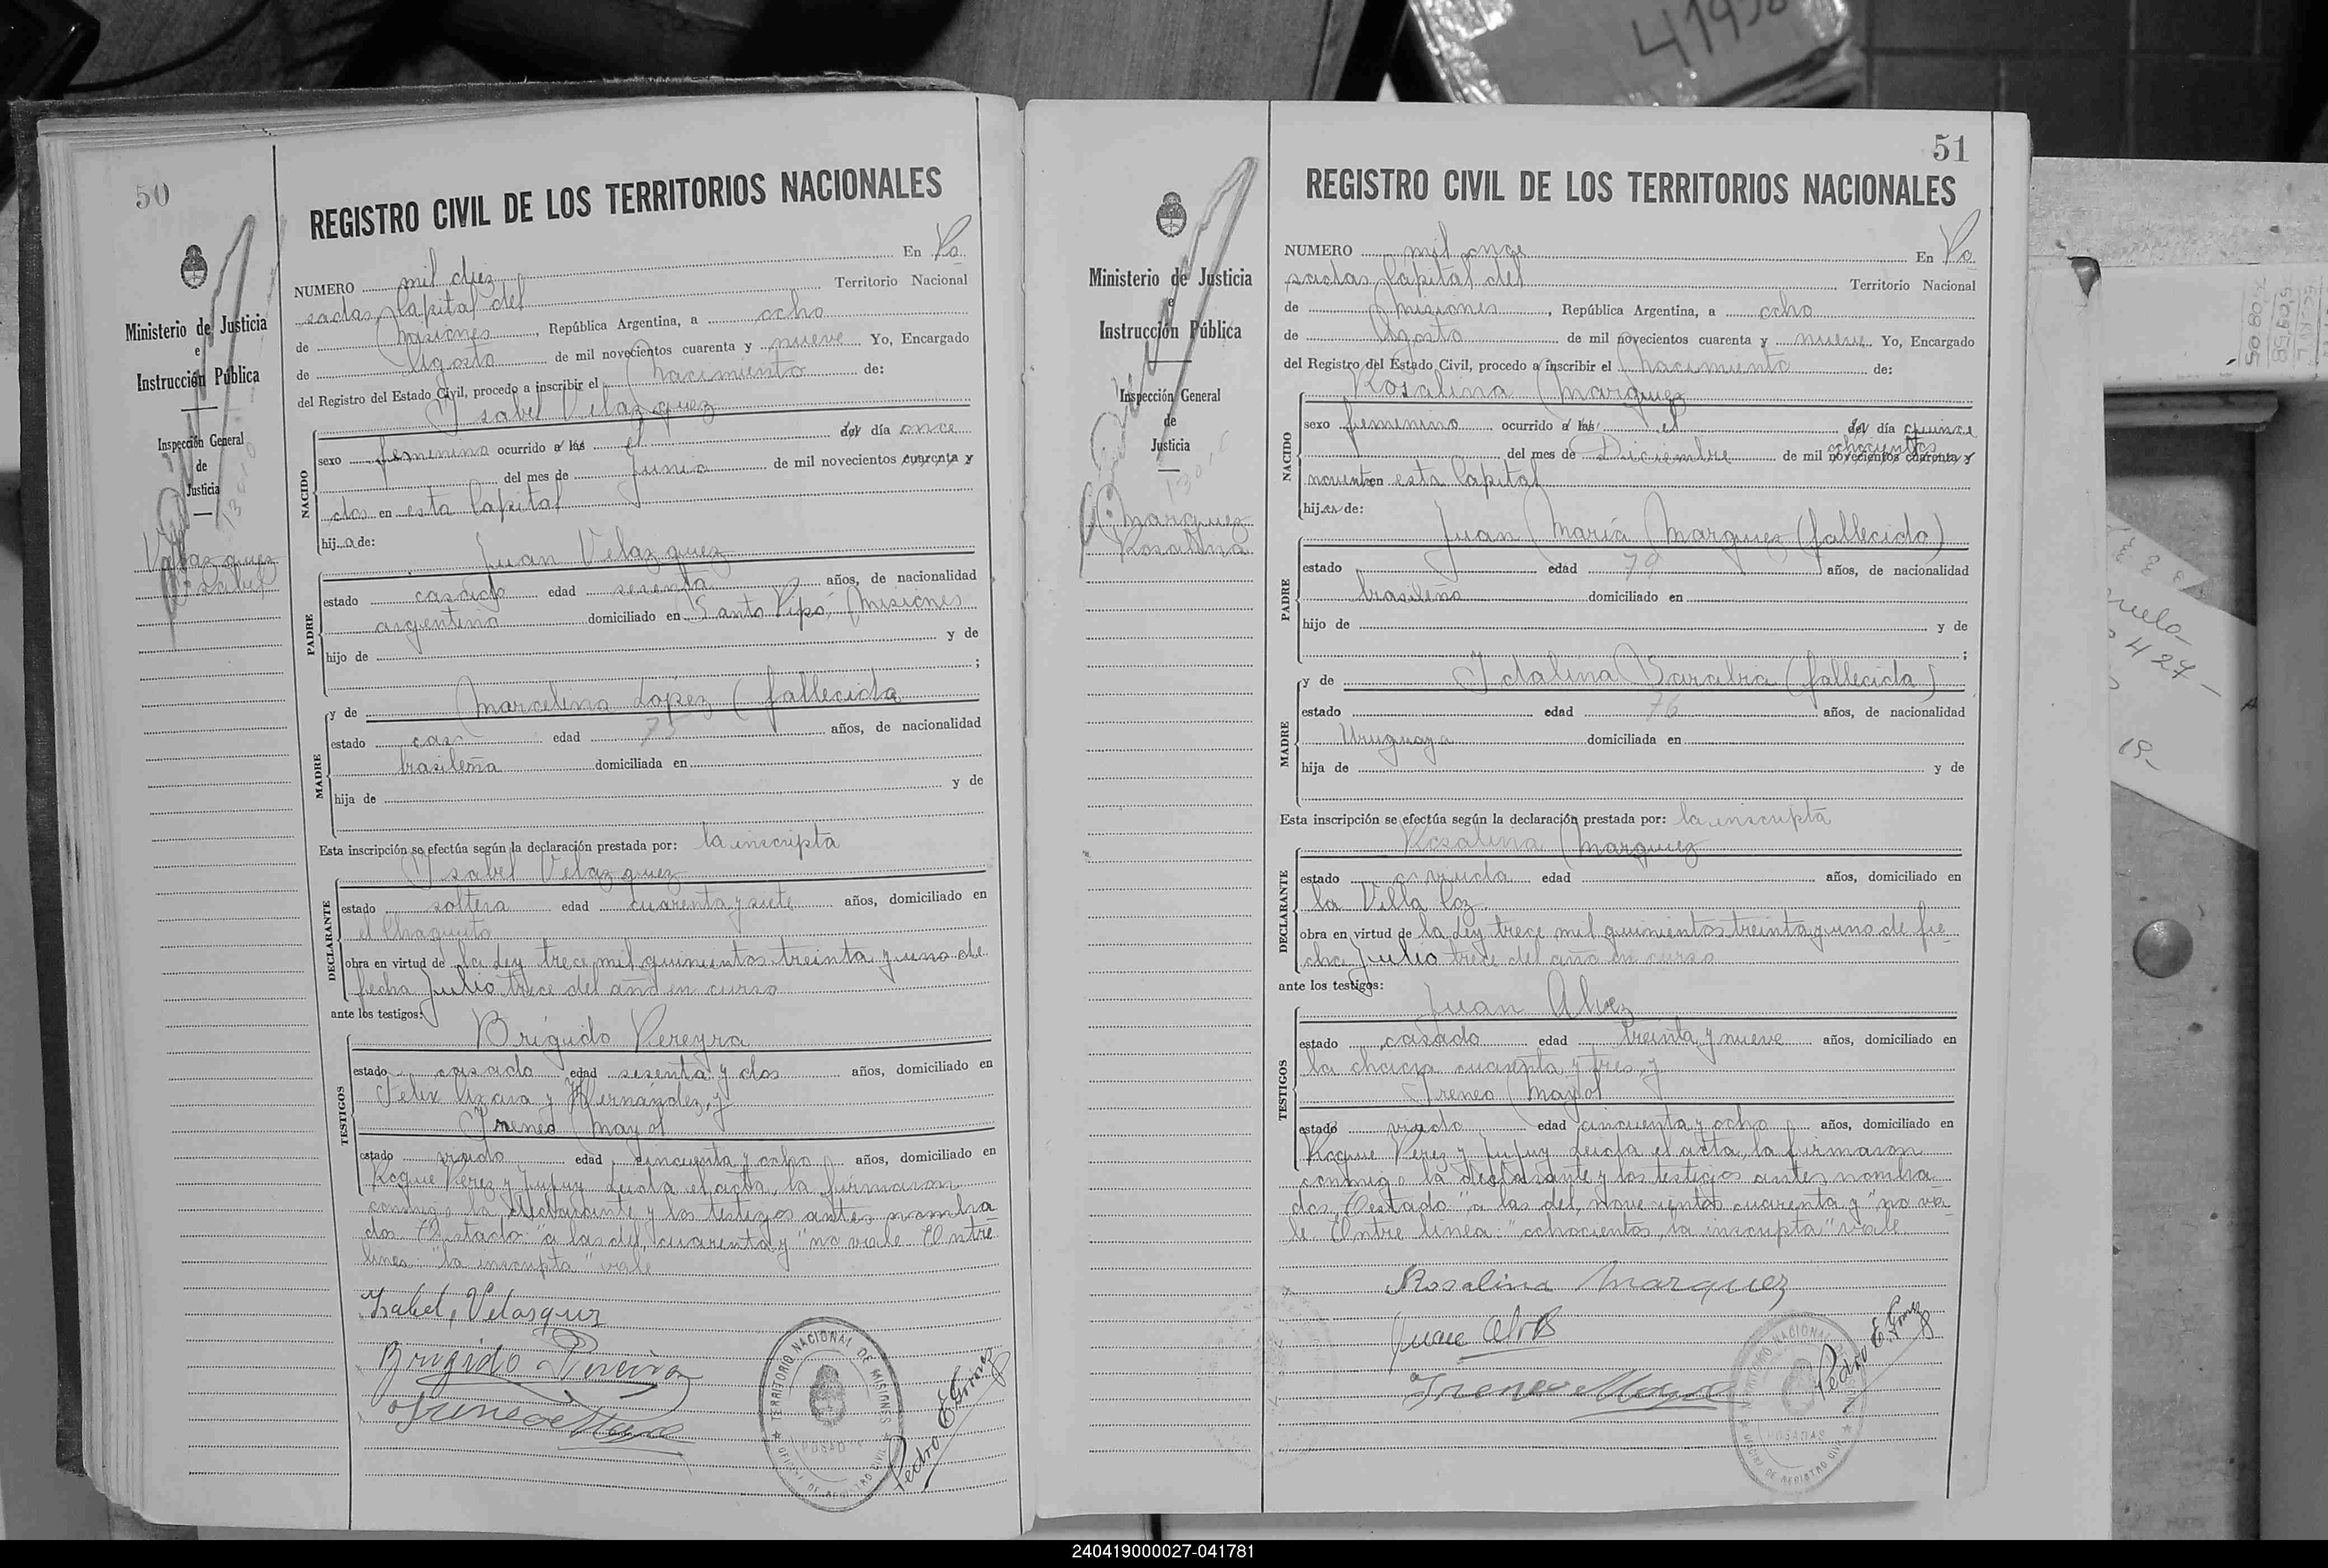 41938
50
REGISTRO CIVIL DE LOS TERRITORIOS NACIONALES
Ministerio de Justicia
e
Instrucción Pública
Inspección General
de
Justicia
Velazquez
Isabel
NUMERO mil diez En Po
sadas, Capital del Territorio Nacional
de Misiones, República Argentina, a ocho
de Agosto de mil novecientos cuarenta y nueve Yo, Encargado
del Registro del Estado Civil, procedo a inscribir el Nacimiento de:
Isabel Velazquez
NACIDO
sexo femenino ocurrido a las el del día once
del mes de Junio de mil novecientos cuarenta y
dos en esta Capital
hija de:
Juan Velazquez
PADRE
estado casado edad sesenta años, de nacionalidad
argentino domiciliado en Santo Pipó, Misiones
hijo de y de
;
y de Marcelina López (fallecida
MADRE
estado cas edad 75 años, de nacionalidad
brasileña domiciliada en
hija de y de
Esta inscripción se efectúa según la declaración prestada por: la inscripta
Isabel Velazquez
DECLARANTE
estado soltera edad cuarenta y siete años, domiciliado en
el Chaquito
obra en virtud de la Ley trece mil quinientos treinta y uno de
fecha Julio trece del año en curso
ante los testigos:
Brígido Pereyra
TESTIGOS
estado casado edad sesenta y dos años, domiciliado en
Felix Azara y Hernández, y
Ireneo Mayol
estado viudo edad cincuenta y ocho años, domiciliado en
Roque Perez y Jujuy Leida el acta, la firmaron
conmigo la declarante y los testigos antes nombra
dos. Testado: "a las del, cuarenta y" no vale. Entre
linea: "la inscripta" vale
Isabel, Velasquez
Brigido Pereira
Ireneo Mayol
TERRITORIO NACIONAL DE MISIONES
POSADAS
OFICINA DE REGISTRO CIVIL
Pedro E. Gomez
51
REGISTRO CIVIL DE LOS TERRITORIOS NACIONALES
Ministerio de Justicia
e
Instrucción Pública
Inspección General
de
Justicia
Marquez
Rosalina
NUMERO mil once En Po
sadas, Capital del Territorio Nacional
de Misiones, República Argentina, a ocho
de Agosto de mil novecientos cuarenta y nueve Yo, Encargado
del Registro del Estado Civil, procedo a inscribir el Nacimiento de:
Rosalina Marquez
NACIDO
sexo femenino ocurrido a las el del día quince
ochocientos
del mes de Diciembre de mil novecientos cuarenta y
noventa en esta Capital
hija de:
Juan María Marquez (fallecido)
PADRE
estado edad 79 años, de nacionalidad
brasileño domiciliado en
hijo de y de
;
y de Idalina (fallecida)
MADRE
estado edad 76 años, de nacionalidad
Uruguaya domiciliada en
hija de y de
Esta inscripción se efectúa según la declaración prestada por: la inscripta
Rosalina Marquez
DECLARANTE
estado viuda edad años, domiciliado en
la Villa Coz.
obra en virtud de la Ley trece mil quinientos treinta y uno de fe
cha Julio trece del año en curso
ante los testigos:
Juan Alvez
TESTIGOS
estado casado edad treinta y nueve años, domiciliado en
la chacra cuarenta y tres, y
Ireneo Mayol
estado viudo edad cincuenta y ocho años, domiciliado en
Roque Perez y Jujuy Leida el acta, la firmaron
conmigo la declarante y los testigos antes nombra
dos, Testado: "a las del, novecientos cuarenta y" no va
le. Entre linea: "ochocientos, la inscripta" vale
Rosalina Marquez
Juan Alves
Ireneo Mayol
TERRITORIO NACIONAL DE MISIONES
POSADAS
OFICINA DE REGISTRO CIVIL
Pedro E. Gomez
240419000027-041781